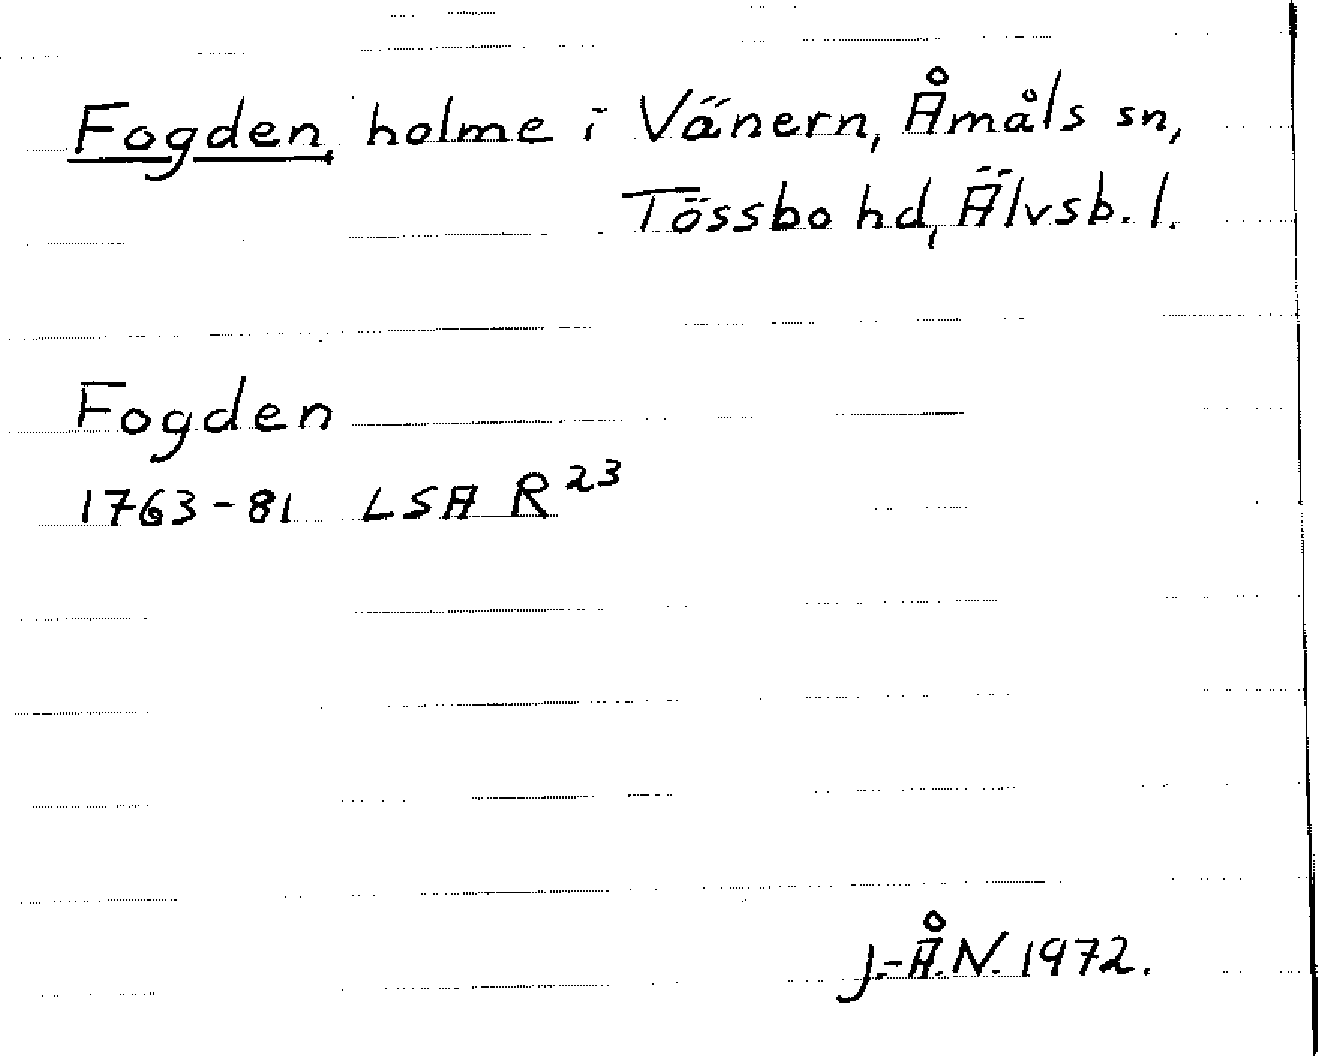 Fogden, holme i Vänern, Åmåls sn,
Tössbo hd, Älvsb. l.
Fogden
1763-81 LSA R²³
J.-Å.N. 1972.